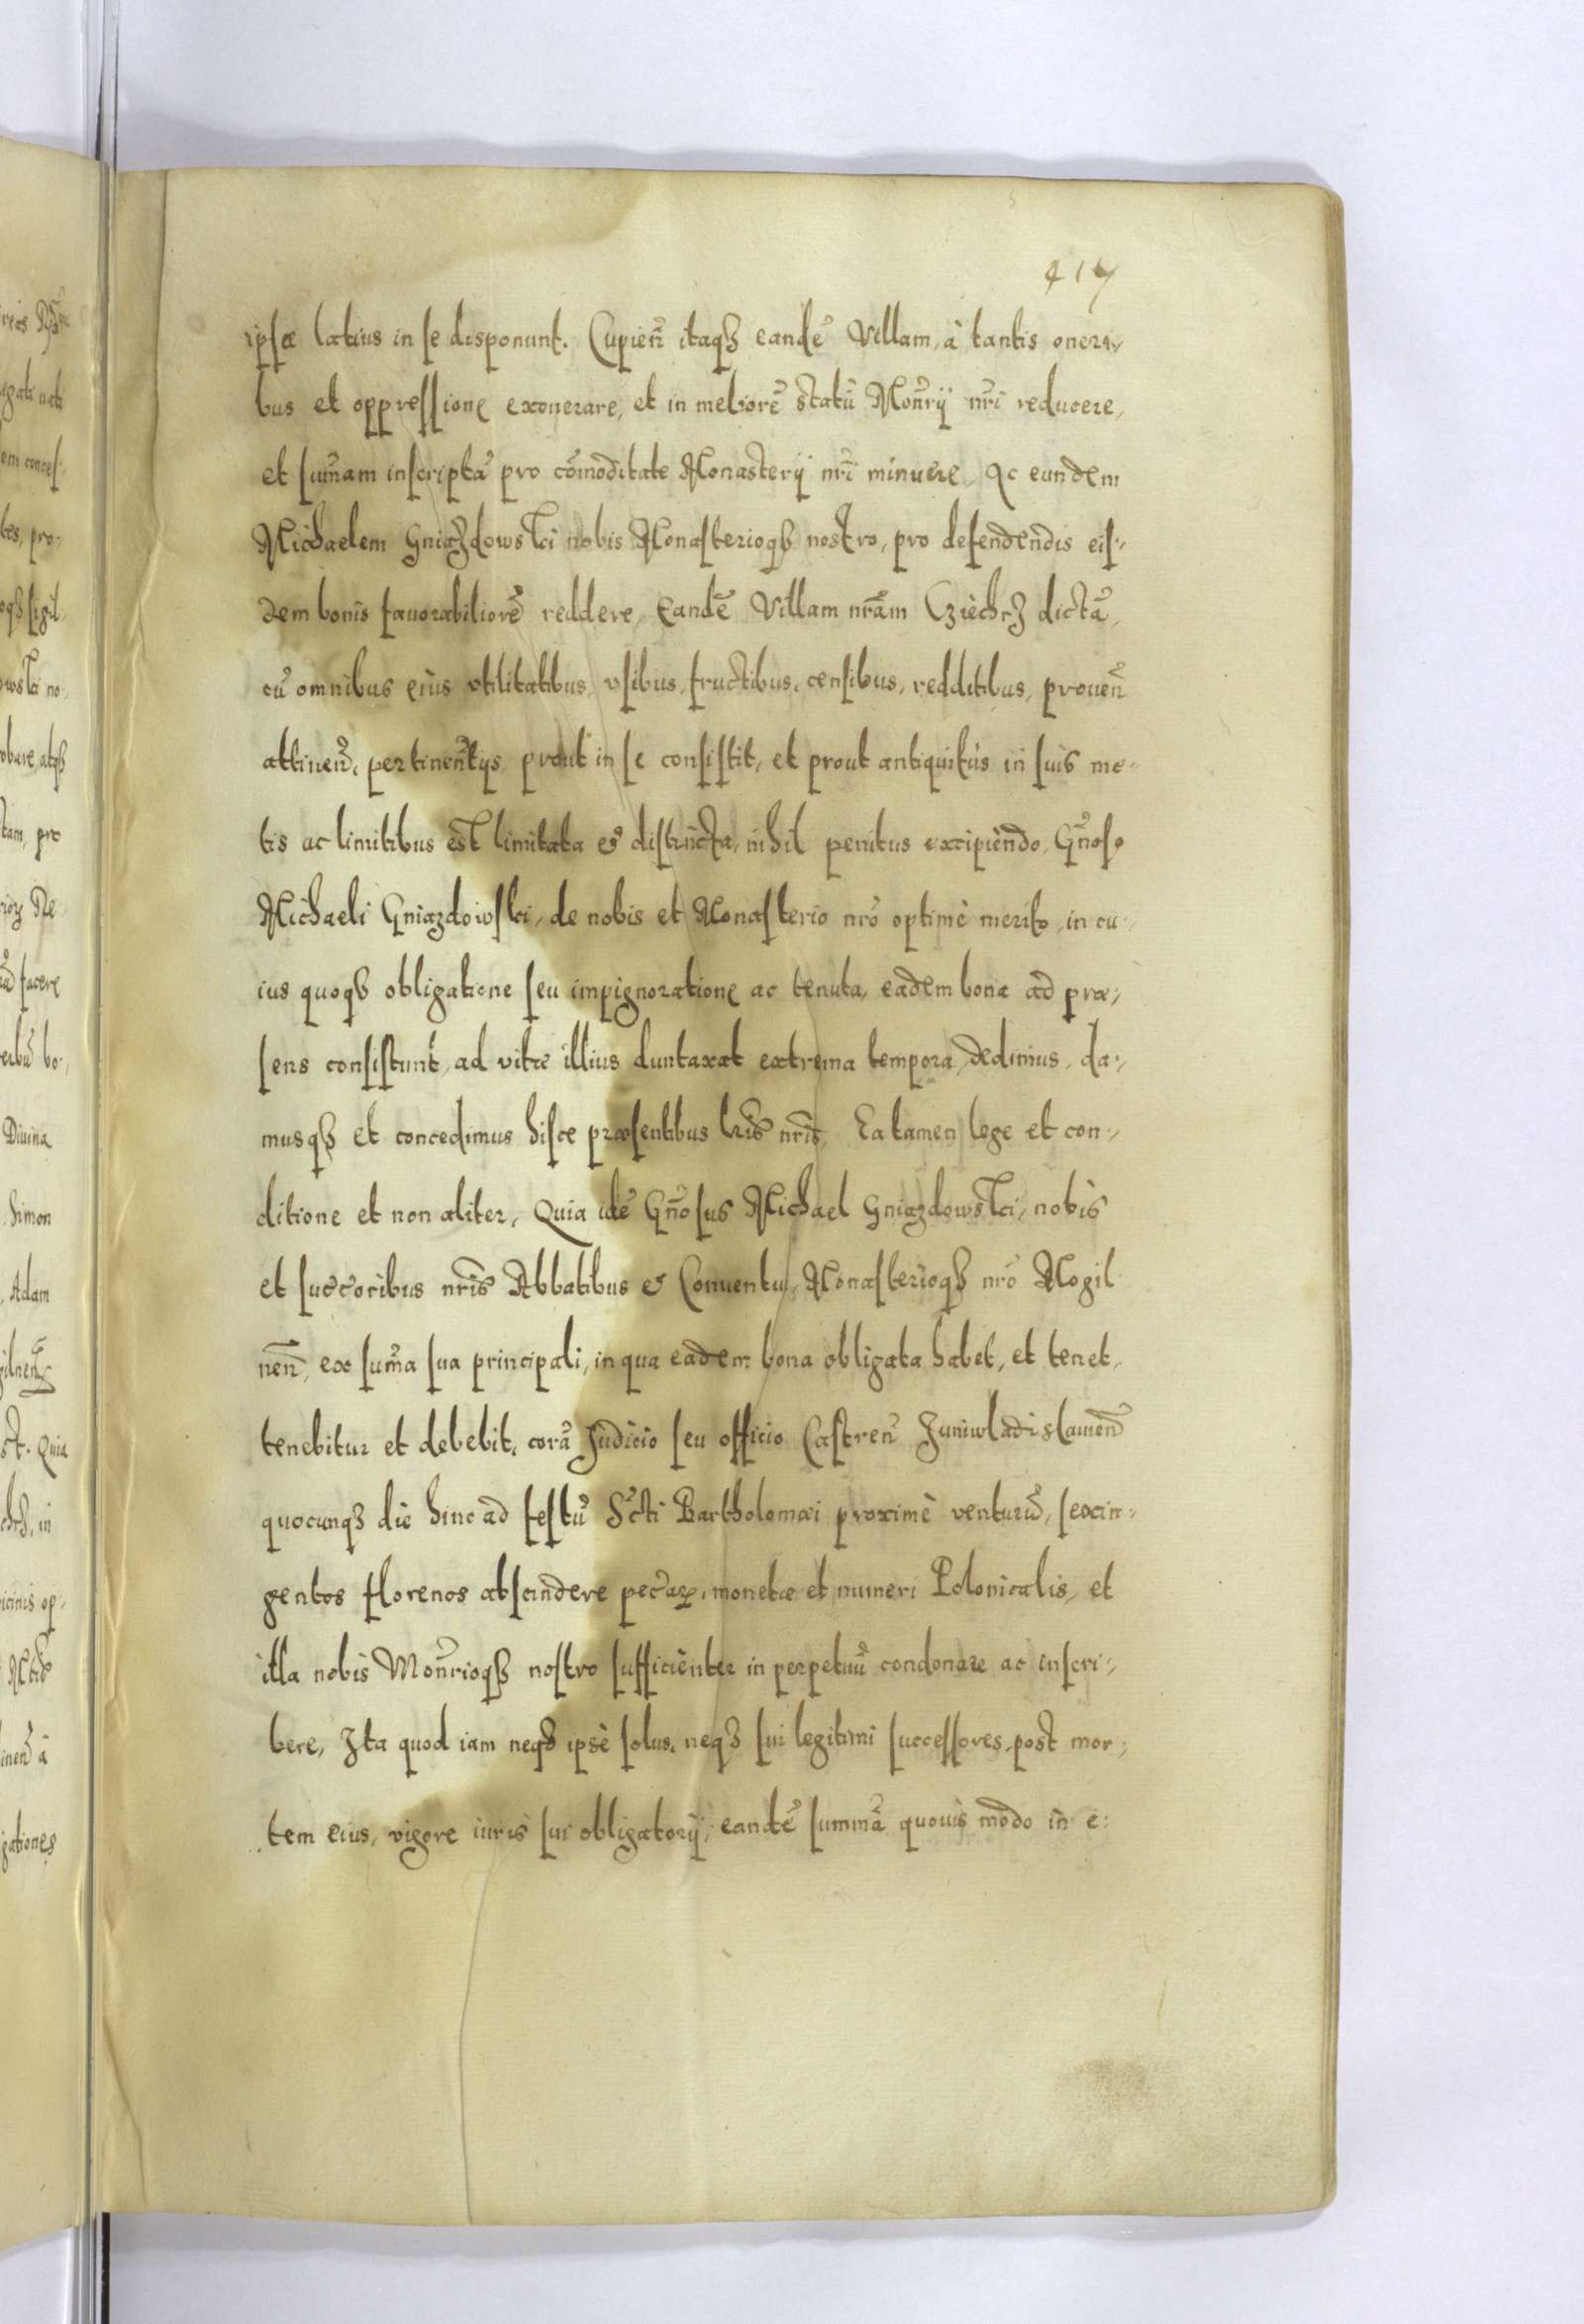 417
ipsæ latius in se disponunt. Cupieñ itaqȝ eandē Villam, à tantis oneri,,
bus et oppressione exonerare, et in meliorē statū Mon̄rij nr̄i reducere,
et sum̄am inscriptā pro cōmoditate Monasterij nr̄i minuere, Ac eundem
Michaelem Gniazdowski nobis Monasterioqȝ nostro, pro defendendis eis,,
dem bonis fauorabiliorē reddere, Eandē Villam nr̄am Cziechrz dictā,
cū omnibus eius vtilitatibus, vsibus, fructibus, censibus, redditibus, prouen̄
attinen̄, pertinen̄tijs, prout in se consistit, et prout antiquitùs in suis me,,
tis ac limitibus est limitata & distincta, nihil penitus excipiendo, Gn̄oso
Michaeli Gniazdowski, de nobis et Monasterio nrō optimè merito, in cu,,
ius quoqȝ obligatione seu impignoratione ac tenuta, eadem bona ad præ,,
sens consistunt, ad vitæ illius duntaxat extrema tempora, dedimus, da,,
musqȝ et concedimus hisce præsentibus lr̄is nr̄is, Ea tamen lege et con,,
ditione et non aliter, Quia idē Gn̄osus Michael Gniazdowski, nobis
et succ̄oribus nr̄is Abbatibus & Conuentui, Monasterioqȝ nrō Mogil
nen̄, ex sum̄a sua principali, in qua eadem bona obligata habet, et tenet,
tenebitur et debebit, corā Judicio seu officio Castren̄ Juniwladislauien̄
quocunqȝ die hinc ad festū Sc̄ti Bartholomæi proximè venturū, sexin,,
gentos florenos abscindere pec̄ar̄, monetæ et numeri Polonicalis, et
illa nobis Mon̄rioqȝ nostro sufficienter in perpetuū condonare ac inscri,,
bere, Ita quod iam neqȝ ipse solus, neqȝ sui legitimi successores, post mor,,
tem eius, vigore iuris sui obligatorij, eandē summā quouis modo in e: